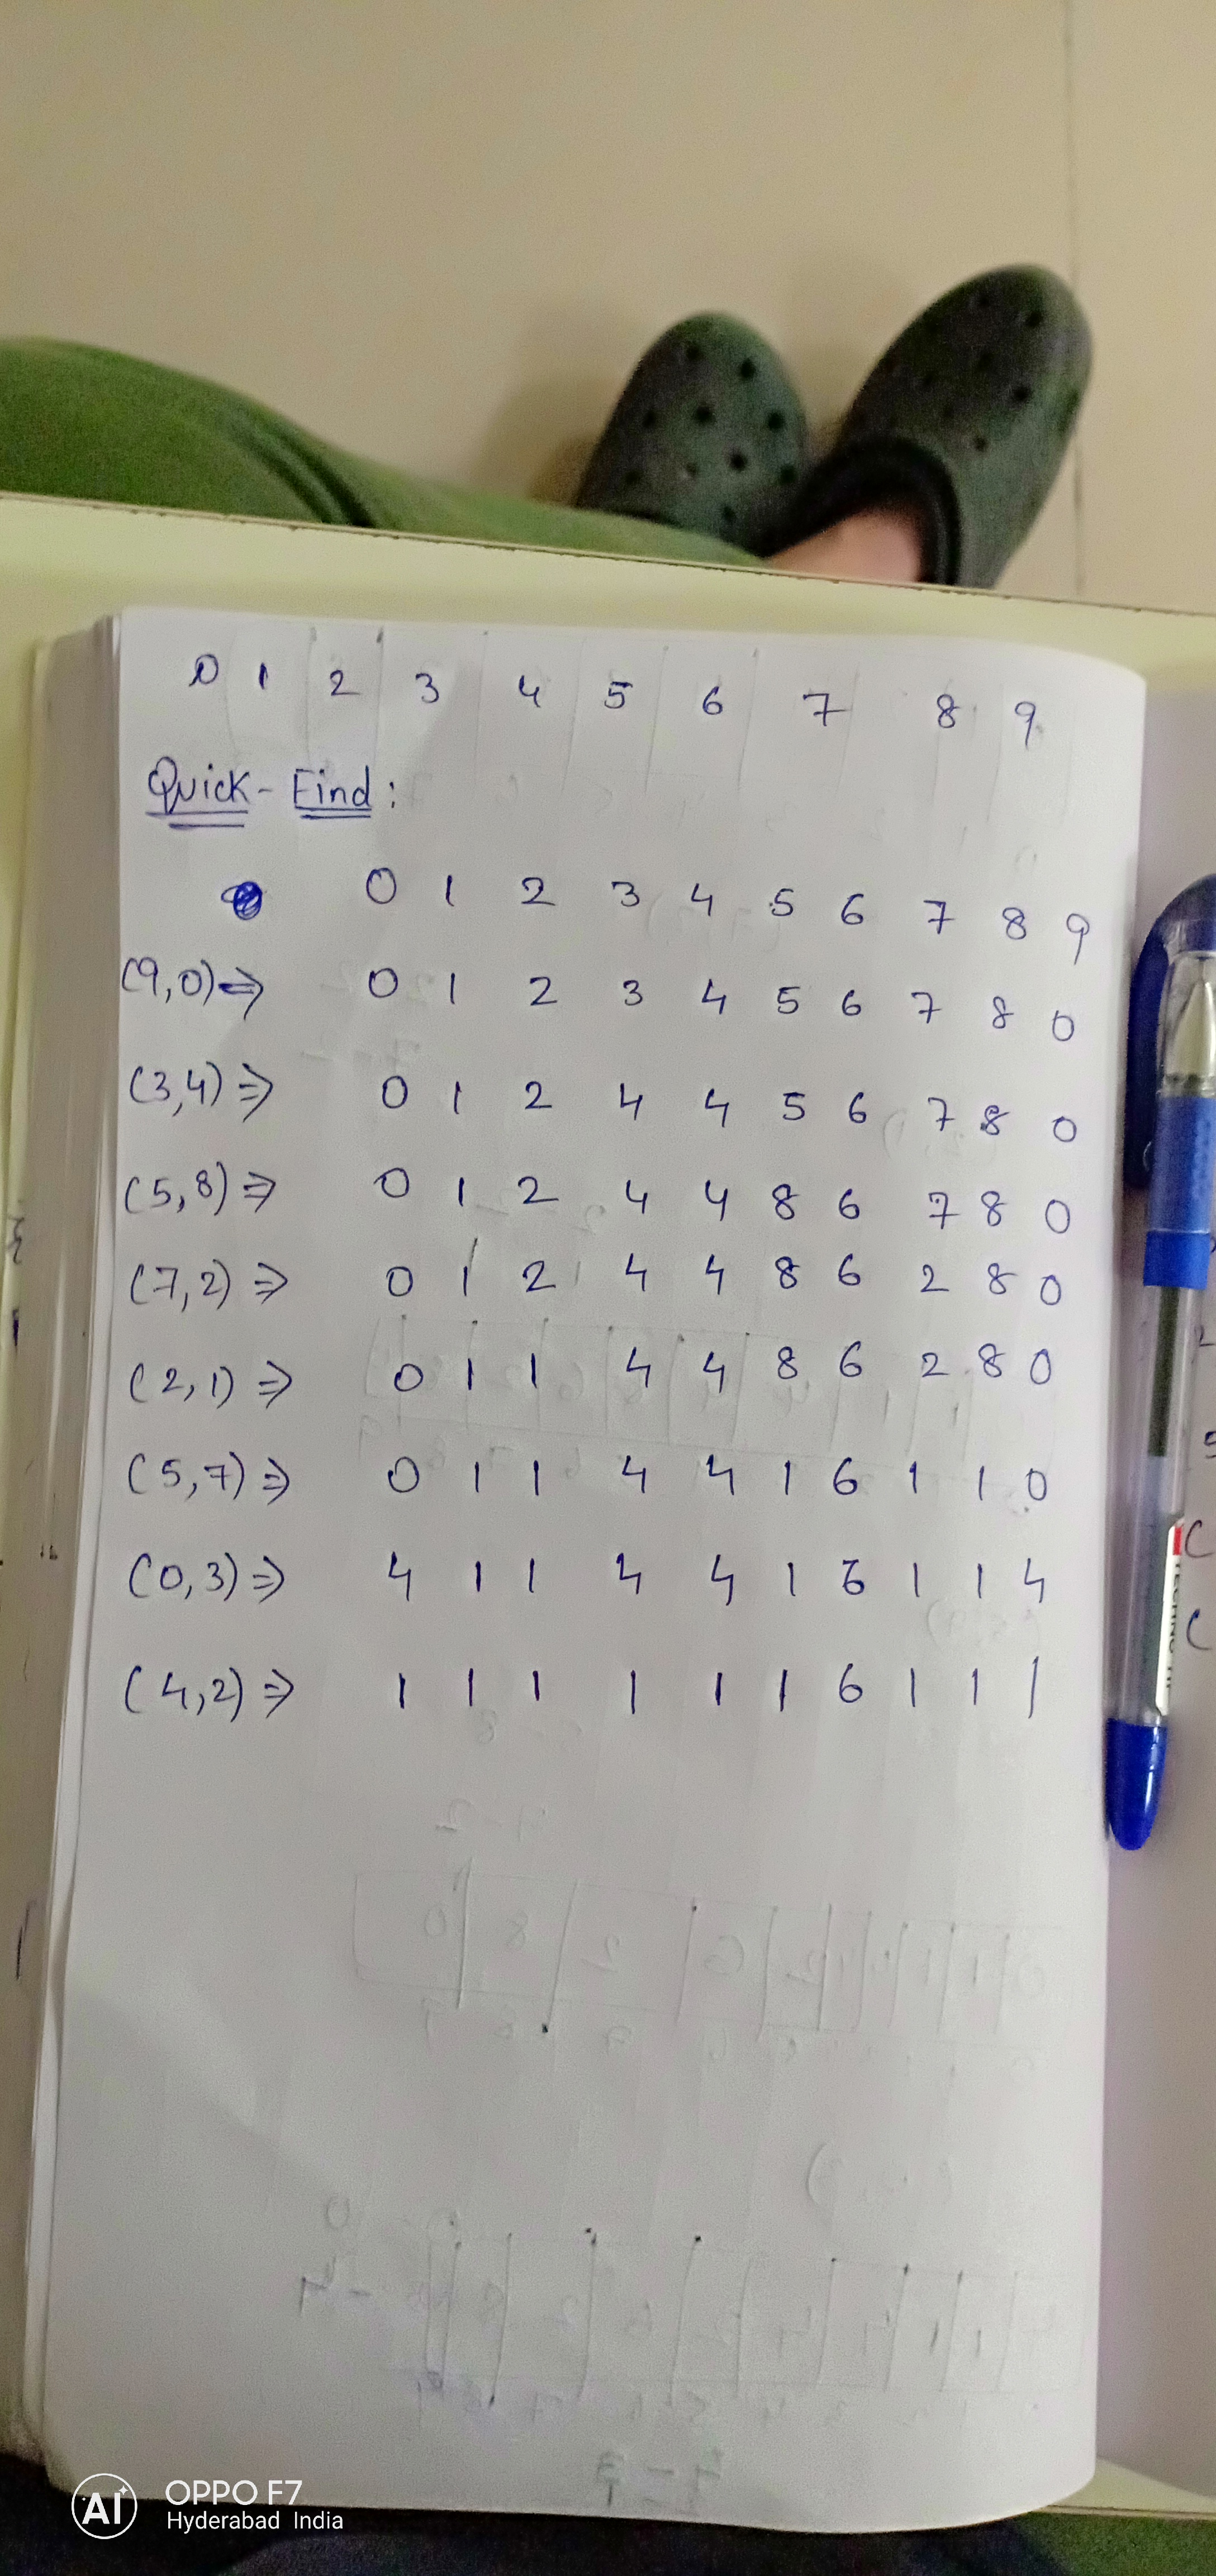 0 1 2 3 4 5 6 7 8 9
Quick-Find:
0 1 2 3 4 5 6 7 8 9
(9,0)⇒ 0 1 2 3 4 5 6 7 8 0
(3,4)⇒ 0 1 2 4 4 5 6 7 8 0
(5,8)⇒ 0 1 2 4 4 8 6 7 8 0
(7,2)⇒ 0 1 2 4 4 8 6 2 8 0
(2,1)⇒ 0 1 1 4 4 8 6 2 8 0
(5,7)⇒ 0 1 1 4 4 1 6 1 1 0
(0,3)⇒ 4 1 1 4 4 1 6 1 1 4
(4,2)⇒ 1 1 1 1 1 1 6 1 1 1
AI OPPO F7
Hyderabad India